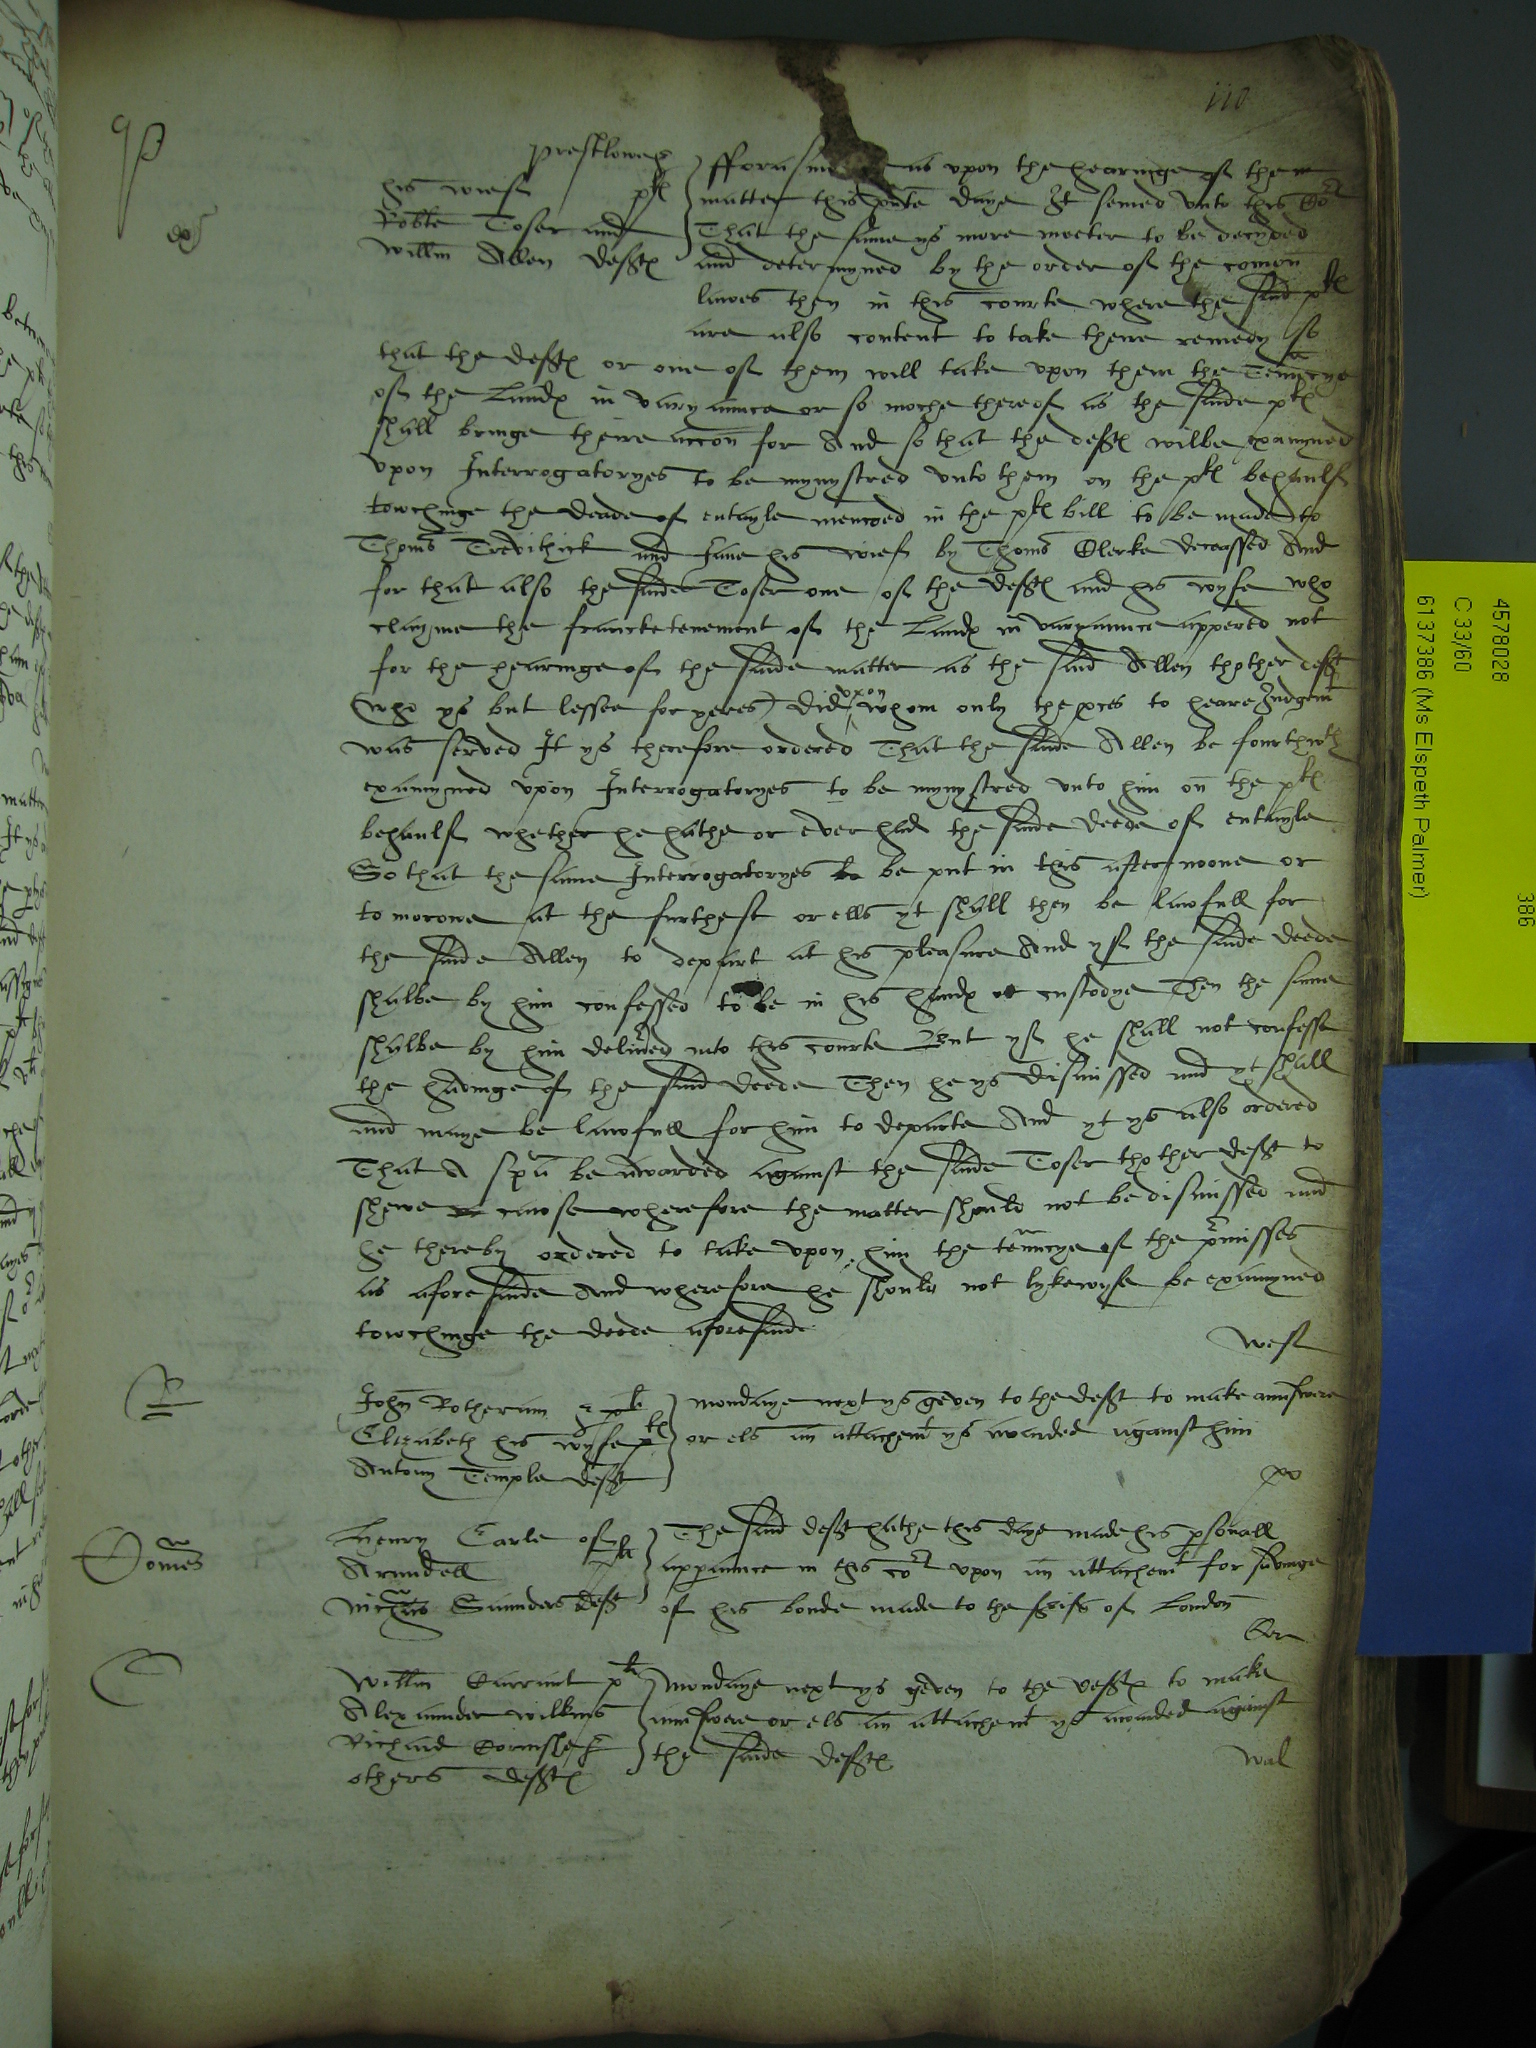 110
prestlowe
his wief plts
Robte Toser and
Willm Allen defts
fforasm as upon the hearinge of the
matter this pnte daye It semed unto this Cort
That the same ys more meeter to be decyded
and determyned by the order of the comon
lawes then in this courte where the said plts
are also content to take there remedy so
that the defts or one of them will take upon them the Tenncye
of the Lands in varyaunce or so moche thereof as the saide plts
shall bringe theire accon for And so that the defts wilbe examyned
upon Interrogatoryes to be mynystred unto them on the plts behaulf
towchinge the deade of entayle menconed in the plts bill to be made to
Thoms Trevithick and Jane his wief by Thoms Clerke deceassed And
for that also the saide Toser one of the defts and his wyfe who
clayme the francktenement of the Lands in varyaunce appered not
for the hearinge of the saide matter as the said Allen thother deft
(who ys but lessee for yeres) did upon whom only the pces to heare Judgemt
was served It ys therefore ordered That the saide Allen be fourthwth
examyned upon Interrogatoryes to be mynystred unto him on the plts
behaulf whether he hathe or ever had the saide deede of entayle
So that the same Interrogatoryes be put in this after noone or
to morowe at the furthest or ells yt shall then be lawfull for
the saide Allen to depart at his pleasure And yf the saide deede
shalbe by him confessed to be in his hands or custodye Then the same
shalbe by him delivred into this courte But yf he shall not confesse
the havinge of the said deede Then he ys dismissed and yt shall
and maye be lawfull for him to departe And yt ys also ordered
That A spa be awarded against the saide Toser thother deft to
shewe cawse wherefore the matter should not be dismissed and
he thereby ordered to take upon him the tenncye of the pmisses
as aforesaide And wherefore he should not lykewyse be examyned
towchinge the deede aforesaide
West
John Rotheram &
Elizabeth his wyfe plts
Antony Temple deft
mondaye next ys geven to the deft to make aunswere
or els an attachemt ys awarded against him
po
Henry Earle of
Arundell plt
Nichas Saunders deft
The said deft hathe this daye made his psonall
apparaunce in this cort upon an attachemt for savinge
of his bonde made to the shrifs of London
Cor
Willm Currant plt
Alexaunder Wilkins
Richard Cornishe &
others defts
mondaye next ys geven to the defts to make
aunswere or els an attachemt ys awarded against
the saide defts
Wal
4578028
C 33/60
6137386 (Ms Elspeth Palmer)
386